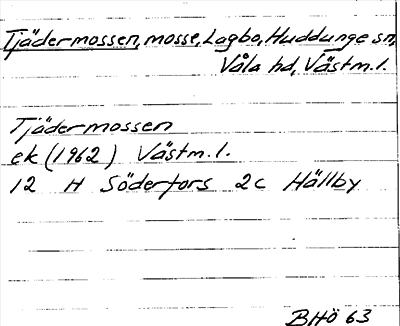 Tjädermossen, mosse, Lagbo, Huddunge sn,
Våla hd, Västm.l.
Tjädermossen
ek (1962) Västm.l.
12 H Söderfors 2c Hällby
BHÖ 63